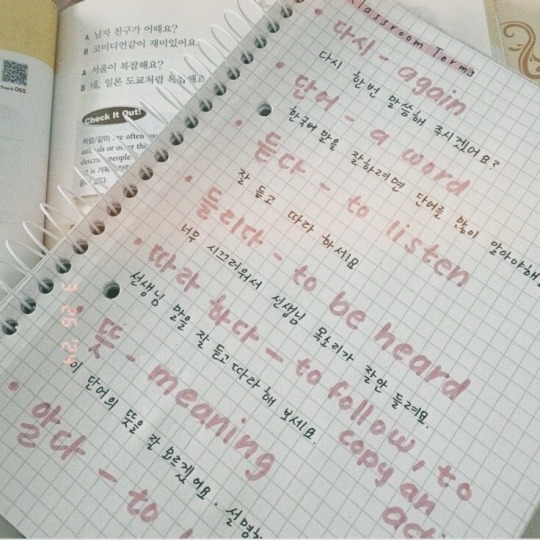 A 남자 친구가 어때요?
B 코미디언같이 재미있어요.
A 서울이 복잡해요?
B 네, 일본 도쿄처럼 복잡해요
Track 065
Check It Out!
처럼/같이 are often
or other
people.
Classroom Terms
• 다시 - again
다시 한번 말씀해 주시겠어요?
• 단어 - a word
한국어 말을 잘하려면 단어를 많이 알아야해
• 듣다 - to listen
잘 듣고 따라 하세요
• 들리다 - to be heard
너무 시끄러워서 선생님 목소리가 잘안 들려요.
• 따라 하다 - to follow, to
copy an
선생님 말을 잘 듣고 따라해 보세요.
뜻 - meaning
이 단어의 뜻을 잘 모르겠어요.
• 알다 - to
3 26 '24